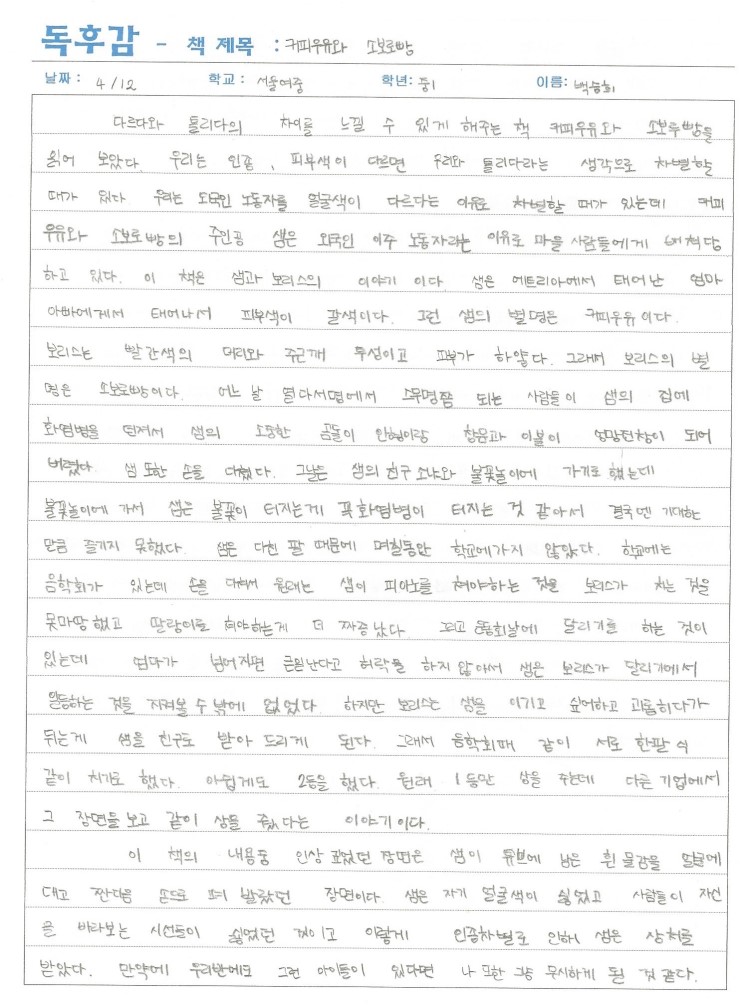 독후감 - 책 제목 : 커피우유와 소보로빵
날짜 : 4/12 학교 : 서울여중 학년 : 중1 이름 : 백승희
다르다와 틀리다의 차이를 느낄 수 있게 해주는 책 커피우유와 소보루빵을
읽어 보았다. 우리는 인종, 피부색이 다르면 우리와 틀리다라는 생각으로 차별할
때가 있다. 우리는 외국인 노동자를 얼굴색이 다르다는 이유로 차별할 때가 있는데 커피
우유와 소보로빵의 주인공 샘은 외국인 이주 노동자라는 이유로 마을 사람들에게 배척당
하고 있다. 이 책은 샘과 보리스의 이야기 이다. 샘은 에트리아에서 태어난 엄마
아빠에게서 태어나서 피부색이 갈색이다. 그런 샘의 별명은 커피우유이다.
보리스는 빨간색의 머리와 주근깨 투성이고 피부가 하얗다. 그래서 보리스의 별
명은 소보로빵이다. 어느 날 열다서명에서 스무명쯤 되는 사람들이 샘의 집에
화염병을 던져서 샘의 소중한 곰돌이 인형이랑 창문과 이불이 엉망진창이 되어
버렸다. 샘 또한 손을 다쳤다. 그날은 샘의 친구 소냐와 불꽃놀이에 가기로 했는데
불꽃놀이에 가서 샘은 불꽃이 터지는게 꼭 화염병이 터지는 것 같아서 결국엔 기대한
만큼 즐기지 못했다. 샘은 다친 팔 때문에 며칠동안 학교에가지 않았다. 학교에는
음학회가 있는데 손을 다쳐서 원래는 샘이 피아노를 쳐야하는 것을 보리스가 치는 것을
못마땅했고 딸랑이를 쳐야하는게 더 짜증났다. 그리고 운동회날에 달리기를 하는 것이
있는데 엄마가 넘어지면 큰일난다고 허락을 하지 않아서 샘은 보리스가 달리기에서
일등하는 것을 지켜볼 수 밖에 없었다. 하지만 보리스는 샘을 이기고 싶어하고 괴롭히다가
뒤는게 샘을 친구로 받아 드리게 된다. 그래서 음학회때 같이 서로 한팔 식
같이 치기로 했다. 아쉽게도 2등을 했다. 원래 1등만 상을 주는데 다른 기업에서
그 장면을 보고 같이 상을 줬다는 이야기이다.
이 책의 내용중 인상 깊었던 장면은 샘이 튜브에 남은 흰 물감을 얼굴에
대고 짠다음 손으로 펴 발랐던 장면이다. 샘은 자기 얼굴색이 싫었고 사람들이 자신
을 바라보는 시선들이 싫었던 것이고 이렇게 인종차별로 인해 샘은 상처를
받았다. 만약에 우리반에도 그런 아이들이 있다면 나 또한 그냥 무시하게 될 것 같다.